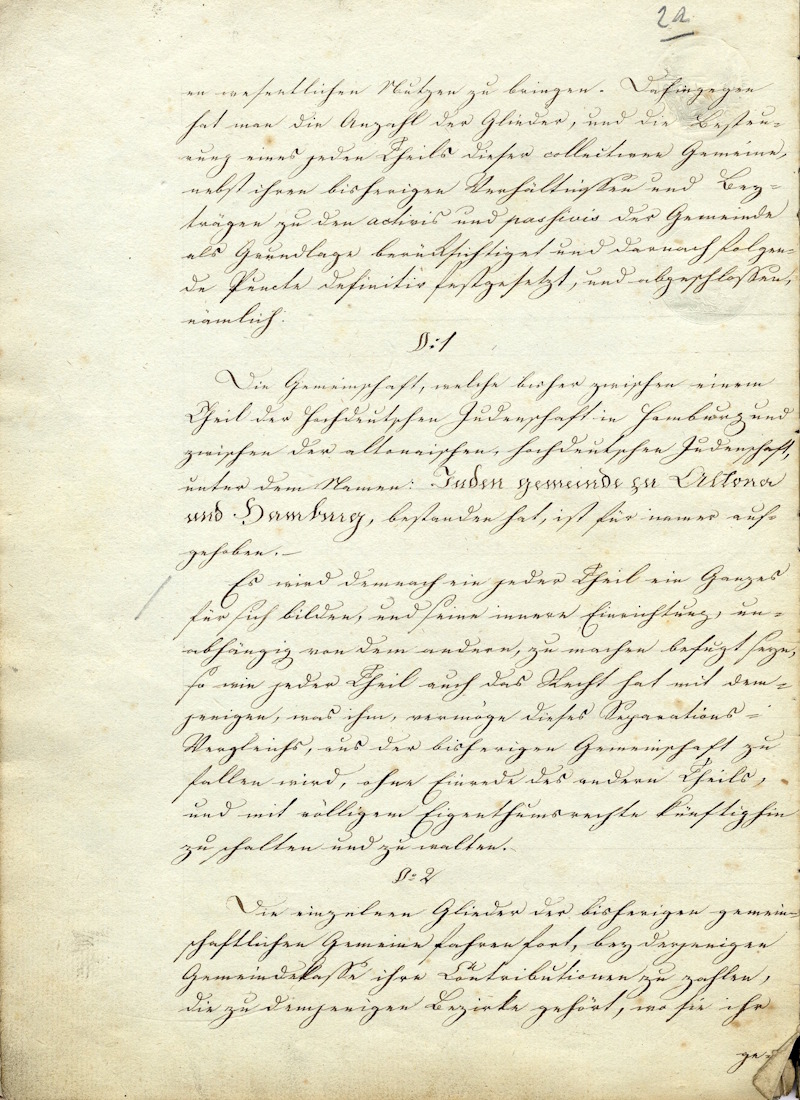 2a
en wesentlichen Nutzen zu bringen. Dahingegen
hat man die Anzahl der Glieder, und die Besteu-
rung eines jeden Theils dieser collectiven Gemeine,
nebst ihren bisherigen Verhältnissen und Bey-
trägen zu den activis und passivis der Gemeinde
als Grundlage berücksichtiget und darnach folgen-
de Puncte definitiv festgesetzt, und abgeschlossen,
nämlich:
§:1
Die Gemeinschaft, welche bisher zwischen einem
Theil der hochdeutschen Judenschaft in Hamburg und
zwischen der altonaischen, hochdeutschen Judenschaft,
unter dem Namen: Juden gemeinde zu Altona
und Hamburg, bestanden hat, ist für immer auf-
gehoben. –
Es wird demnach ein jeder Theil ein Ganzes
für sich bilden, und seine innere Einrichtung, un-
abhängig von dem andern, zu machen befugt seyn,
so wie jeder Theil auch das Recht hat mit dem-
jenigen, was ihm, vermöge dieses Separations-
Vergleichs, aus der bisherigen Gemeinschaft zu
fallen wird, ohne Einrede des andern Theils,
und mit völligem Eigenthumsrechte künftighin
zu schalten und zu walten.
§:2
Die einzelnen Glieder der bisherigen gemein-
schaftlichen Gemeine fahren fort, bey derjenigen
Gemeindekasse ihre Contributionen zu zahlen,
die zu demjenigen Bezirke gehört, wo sie ihr
ge-